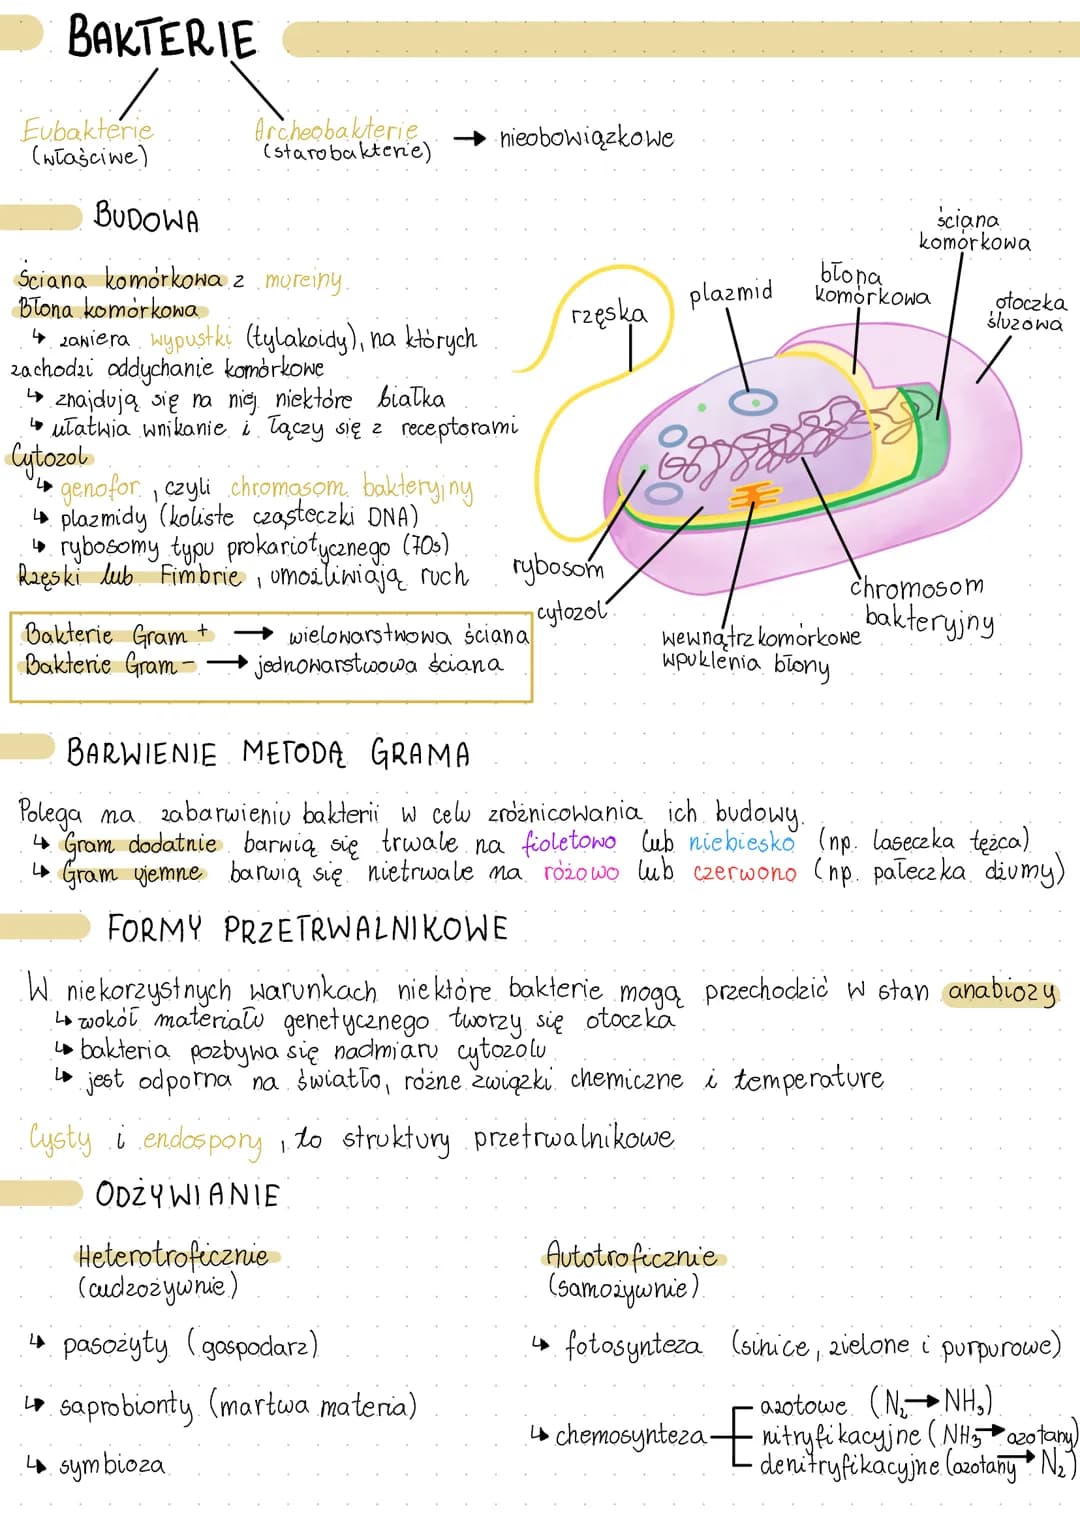 BAKTERIE
Eubakterie
(właściwe)
Archeobakterie
(starobakterie)
→ nieobowiązkowe
BUDOWA
Ściana komórkowa z mureiny
Błona komórkowa
↳ zawiera wypustki (tylakoidy), na których
zachodzi oddychanie komórkowe
↳ znajdują się na niej niektóre białka
↳ ułatwia wnikanie i łączy się z receptorami
Cytozol
↳ genofor, czyli chromosom bakteryjny
↳ plazmidy (koliste cząsteczki DNA)
↳ rybosomy typu prokariotycznego (70s)
Rzęski lub Fimbrie, umożliwiają ruch
Bakterie Gram + → wielowarstwowa ściana
Bakterie Gram - → jednowarstwowa ściana
rzęska
plazmid
błona
komórkowa
ściana
komórkowa
otoczka
śluzowa
rybosom
cytozol
wewnątrzkomórkowe
wpuklenia błony
chromosom
bakteryjny
BARWIENIE METODĄ GRAMA
Polega na zabarwieniu bakterii w celu zróżnicowania ich budowy.
↳ Gram dodatnie barwią się trwale na fioletowo lub niebiesko (np. laseczka tężca)
↳ Gram ujemne barwią się nietrwale na różowo lub czerwono (np. pałeczka dżumy)
FORMY PRZETRWALNIKOWE
W niekorzystnych warunkach niektóre bakterie mogą przechodzić w stan anabiozy
↳ wokół materiału genetycznego tworzy się otoczka
↳ bakteria pozbywa się nadmiaru cytozolu
↳ jest odporna na światło, różne związki chemiczne i temperature
Cysty i endospory, to struktury przetrwalnikowe
ODŻYWIANIE
Heterotroficznie
(cudzożywnie)
↳ pasożyty (gospodarz)
↳ saprobionty (martwa materia)
↳ symbioza
Autotroficznie
(samożywnie)
↳ fotosynteza (sinice, zielone i purpurowe)
↳ chemosynteza
azotowe (N₂→NH₃)
nitryfikacyjne (NH₃→azotany)
denitryfikacyjne (azotany→N₂)